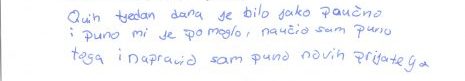 Ouih tjedan dana je bilo jako paučno
i puno mi je pomoglo, naučio sam puno
toga i napravio sam puno novih prijatelja